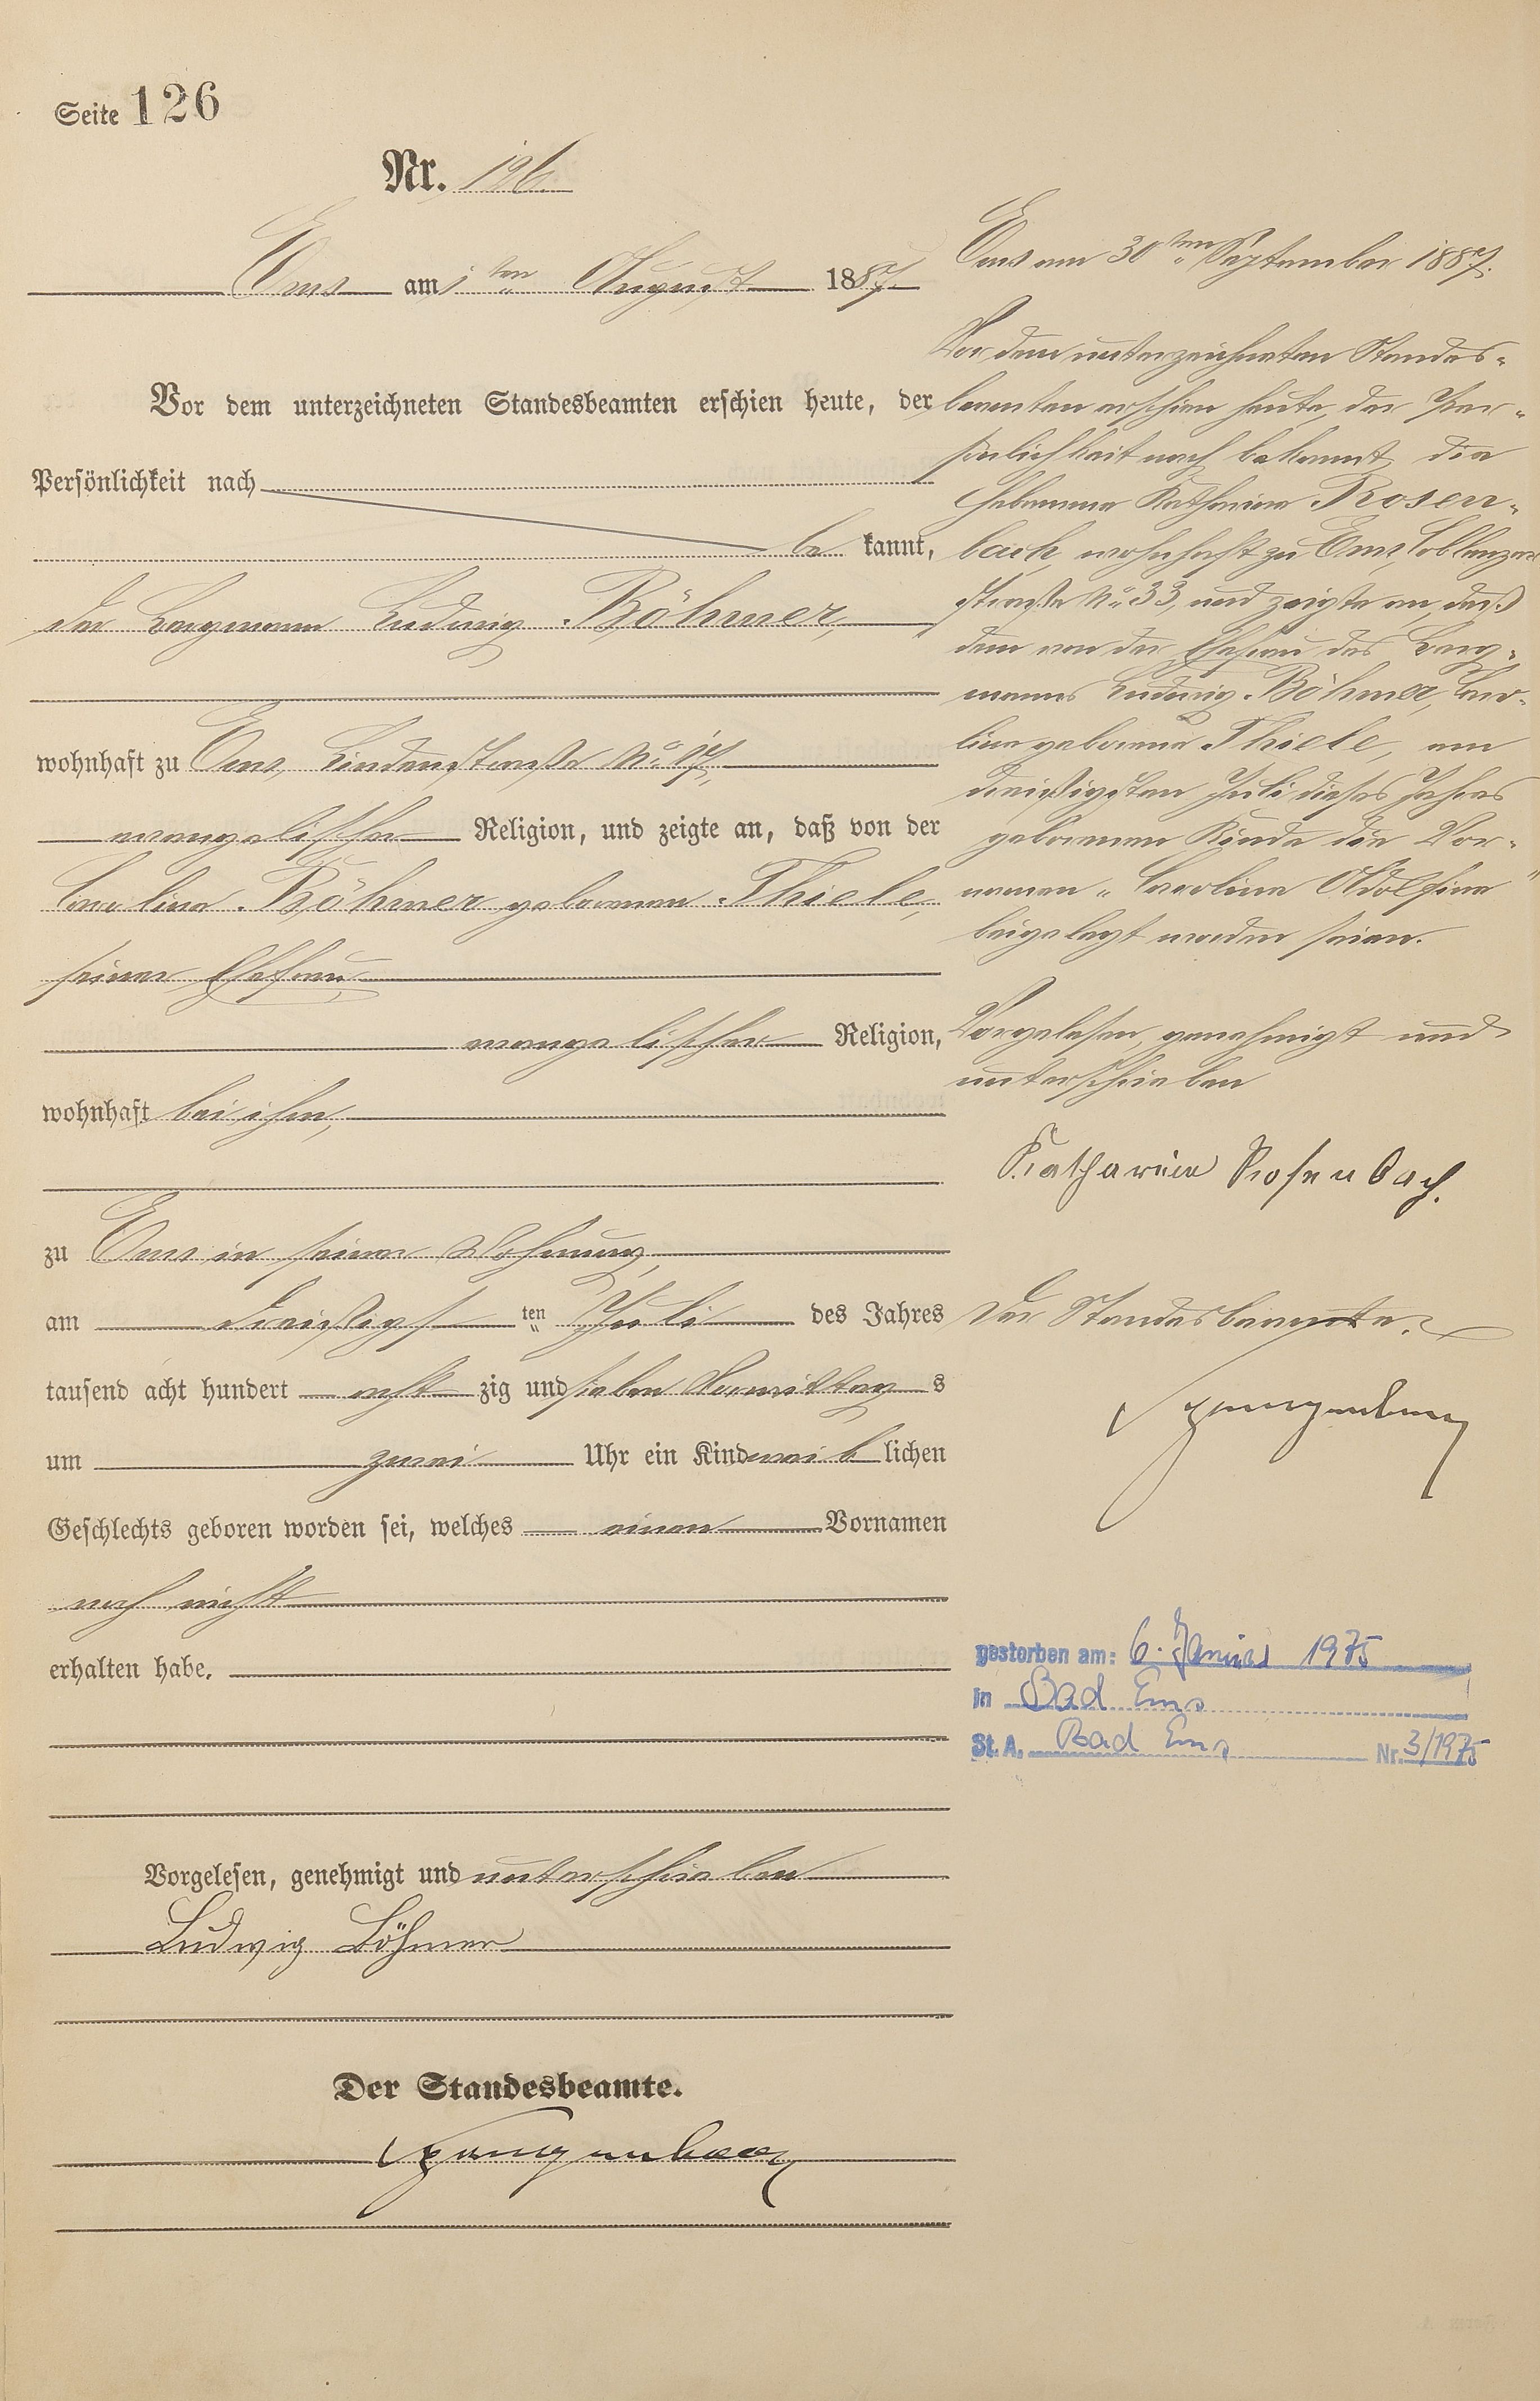 Seite 126
Nr. 126.
Ems am 1ten August 1887.
Vor dem unterzeichneten Standesbeamten erschien heute, der
Persönlichkeit nach
be kannt,
der Bergmann Ludwig Böhmer,
wohnhaft zu Ems, Lindenstraße No. 17,
evangelischer Religion, und zeigte an, daß von der
Caroline Böhmer geborenen Thiele,
seiner Ehefrau
evangelischer Religion,
wohnhaft bei ihm,
zu Ems in seiner Wohnung,
am dreißigsten Juli des Jahres
tausend acht hundert acht zig und sieben Vormittags
um zwei Uhr ein Kind weiblichen
Geschlechts geboren worden sei, welches einen Vornamen
noch nicht
erhalten habe.
Vorgelesen, genehmigt und unterschrieben
Ludwig Böhmer
Der Standesbeamte.
Spangenberg
Ems am 30ten September 1887.
Vor dem unterzeichneten Standes-
beamten erschien heute, der Per-
sönlichkeit nach bekannt, die
Hebamme Katharine Rosen-
bach, wohnhaft zu Ems, Coblenzer
straße No. 33, und zeigte an, daß
dem von der Ehefrau des Berg-
manns Ludwig Böhmer, Caro-
line geborene Thiele, am
dreißigsten Juli dieses Jahres
geborenen Kinde die Vor-
namen „Caroline Adolfine"
beigelegt worden seien.
Vorgelesen, genehmigt und
unterschrieben
Katharina Rosenbach.
Der Standesbeamte.
Spangenberg
gestorben am: 6. Januar 1975
in Bad Ems
St. A. Bad Ems Nr. 3/1975